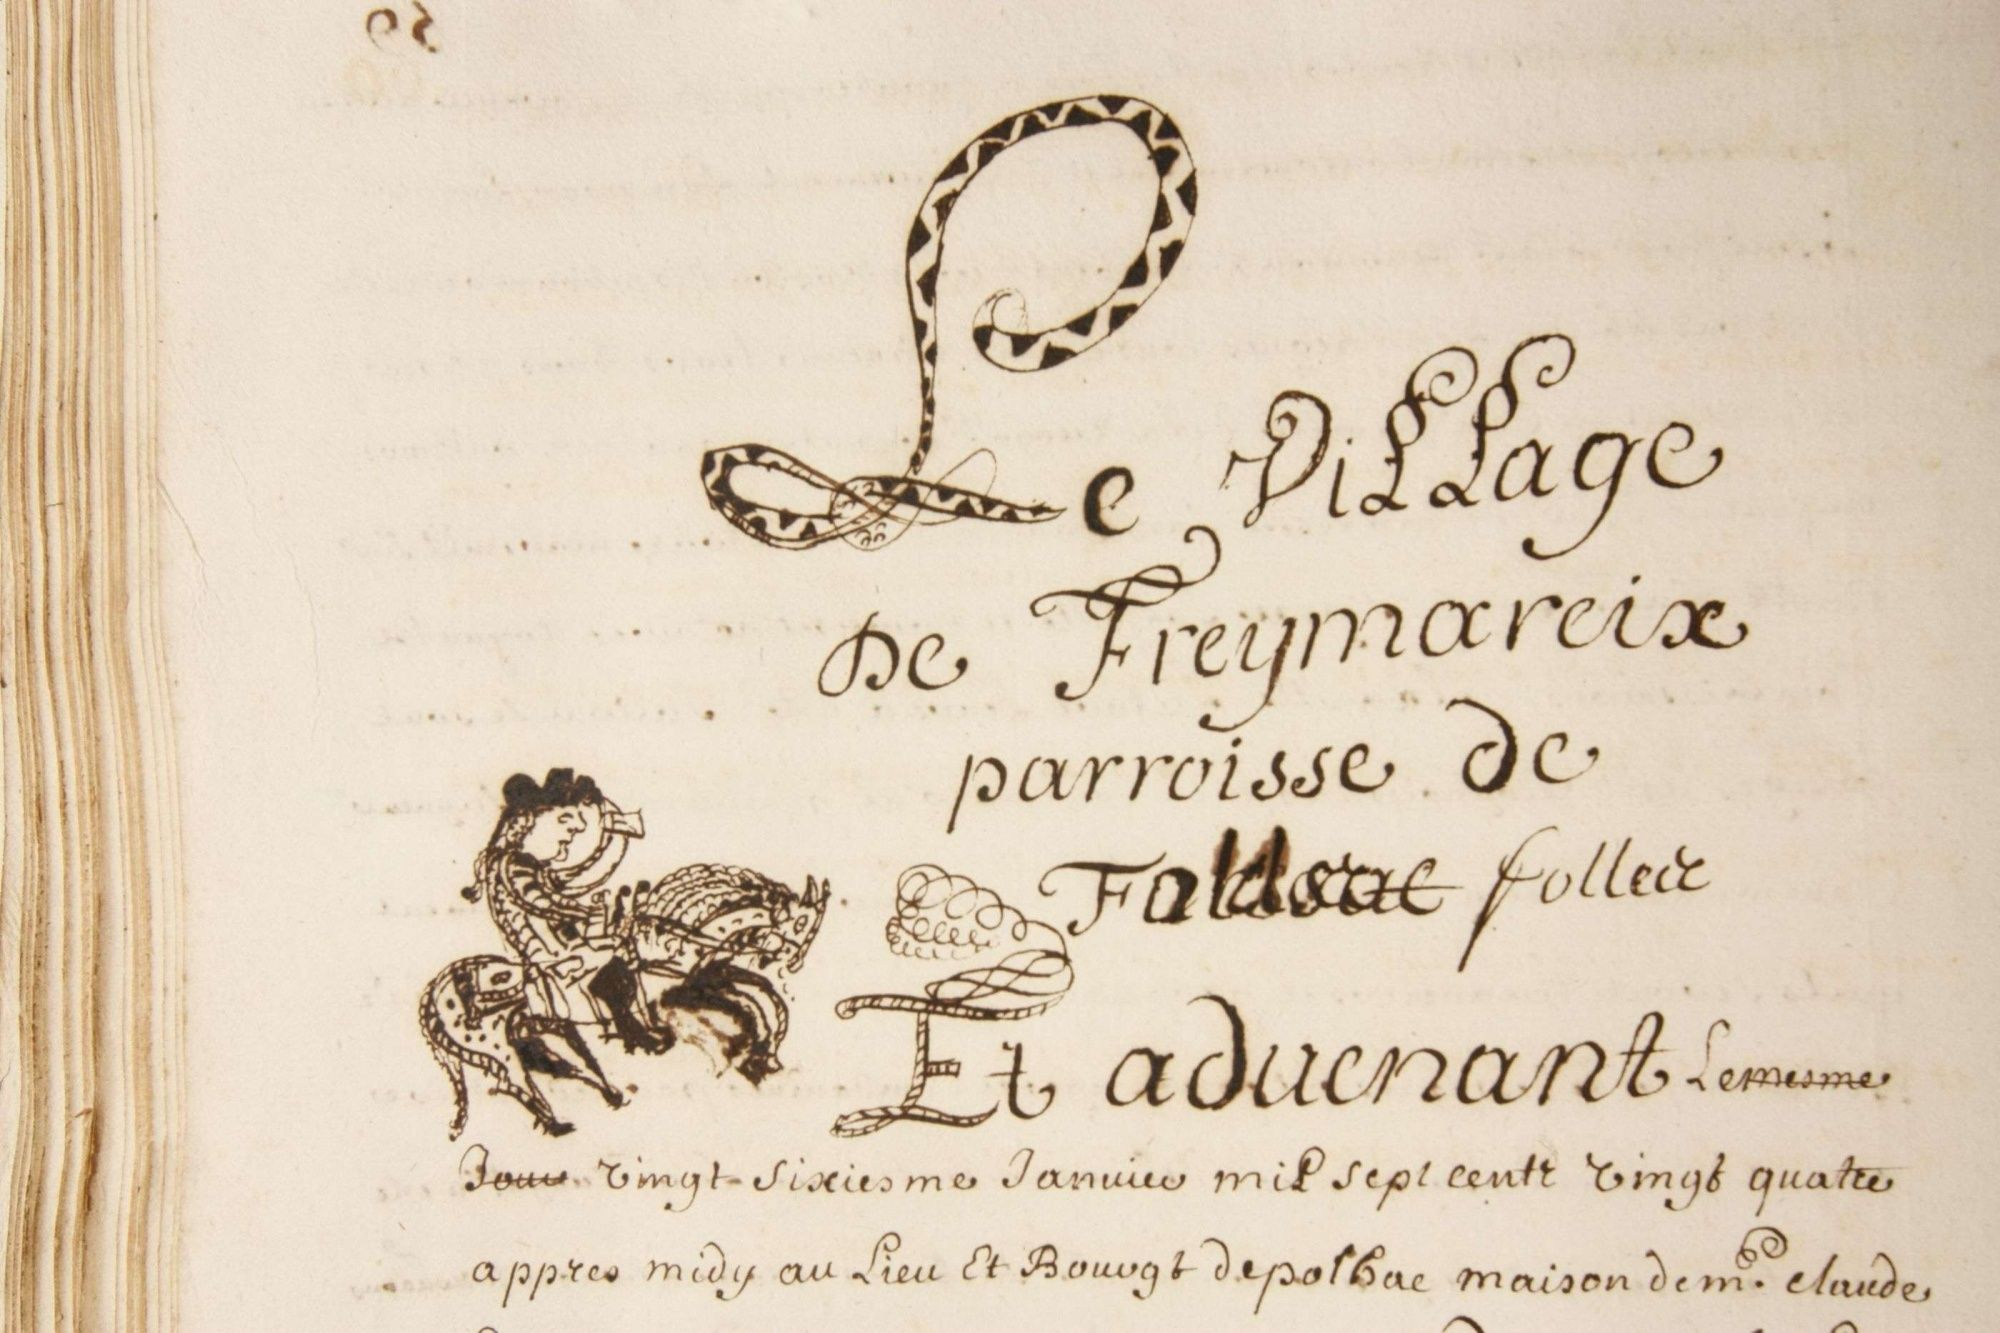 Le Village
de Freymareix
parroisse de
folleix
Et aduenant Le mesme
Jour vingt sixiesme Januier mil sept centz vingt quatre
appres midy au Lieu Et Bourgt de polhac maison de mr. claude